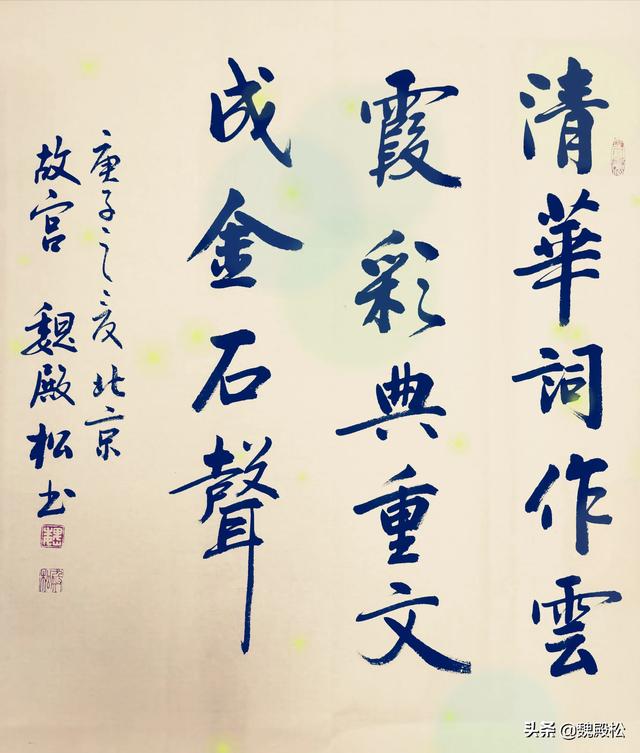 清華詞作雲
霞彩典重文
成金石聲
庚子之夏北京
故宫 魏殿松书
头条 @魏殿松